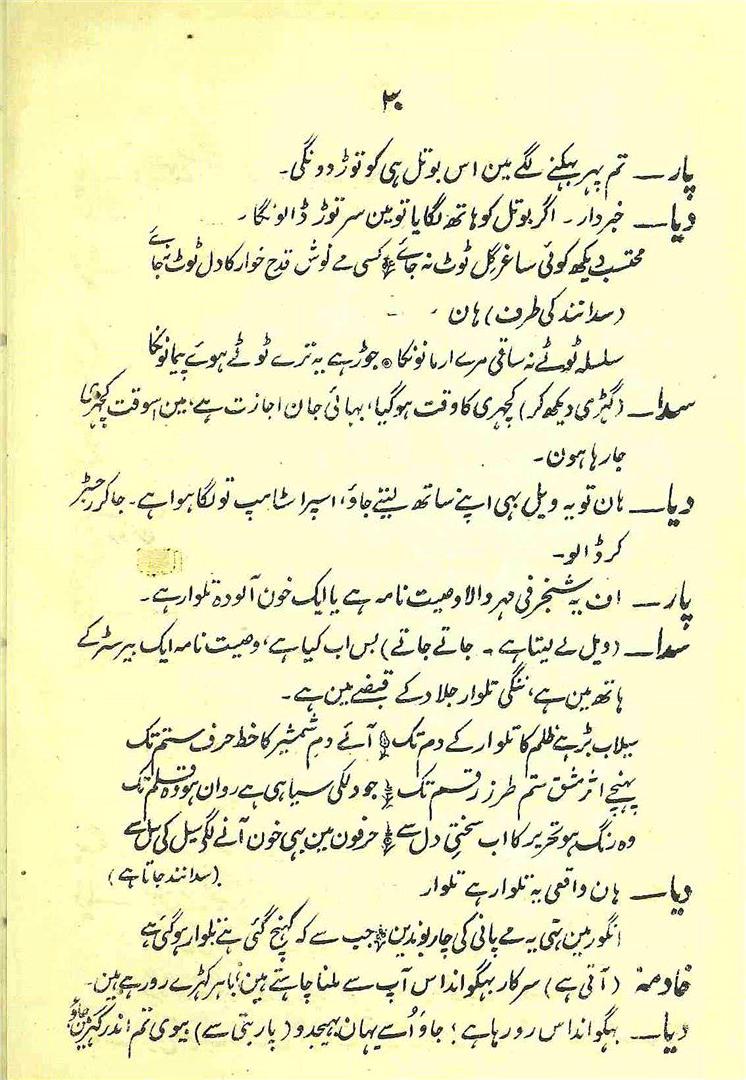 ۳۰
پار — تم پہر بہکنے لگے مین اس بوتل ہی کو توڑ دونگی۔
دیا — خبردار۔ اگر بوتل کو ہاتھ لگایا تو مین سر توڑ ڈالونگا۔
محتسب دیکھ کوئی ساغرِ گِل ٹوٹ نہ جائے کسی مے نوش قدح خوار کا دل ٹوٹ نہ جائے
(سدانند کی طرف) ہان
سلسلہ ٹوٹے نہ ساقی مرے ارمانونکا ۔ جوڑ ہے یہ ترے ٹوٹے ہوئے پیمانونکا
سدا — (گہڑی دیکھ کر) کچہری کا وقت ہو گیا، بہائی جان اجازت ہے، مین اسوقت کچہری
جا رہا ہون۔
دیا — ہان تو یہ ویل بہی اپنے ساتھ لیتے جاؤ، اسپر اسٹامپ تو لگا ہوا ہے۔ جا کر رجسٹر
کر ڈالو۔
پار — اف یہ شنجرفی مہر والا وصیت نامہ ہے یا ایک خون آلودہ تلوار ہے۔
سدا — (ویل لے لیتا ہے۔ جاتے جاتے) بس اب کیا ہے، وصیت نامہ ایک بیرسٹر کے
ہاتھ مین ہے، ننگی تلوار جلاد کے قبضے مین ہے۔
سیلاب بڑہے ظلم کا تلوار کے دم تک آئے دمِ شمشیر کا خط حرف ستم تک
پہنچے اثر مشق ستم طرز رقم تک جو دلکی سیاہی ہے روان ہو وہ قلم تک
وہ رنگ ہو تحریر کا اب سختیِ دل سے حرفون مین بہی خون آنے لگے سیل کی سل سے
(سدانند جاتا ہے)
دیا — ہان واقعی یہ تلوار ہے تلوار
انگور مین تہی یہ مے پانی کی چار بوندین جب سے کہ کہنچ گئی ہے تلوار ہو گئی ہے
خادمہ (آتی ہے) سرکار بہگوانداس آپ سے ملنا چاہتے ہین، باہر کہڑے رو رہے ہین۔
دیا — بہگوانداس رو رہا ہے؛ جاؤ اُسے یہان بہیجدو (پاربتی سے) بیوی تم اندر گہر مین جاؤ